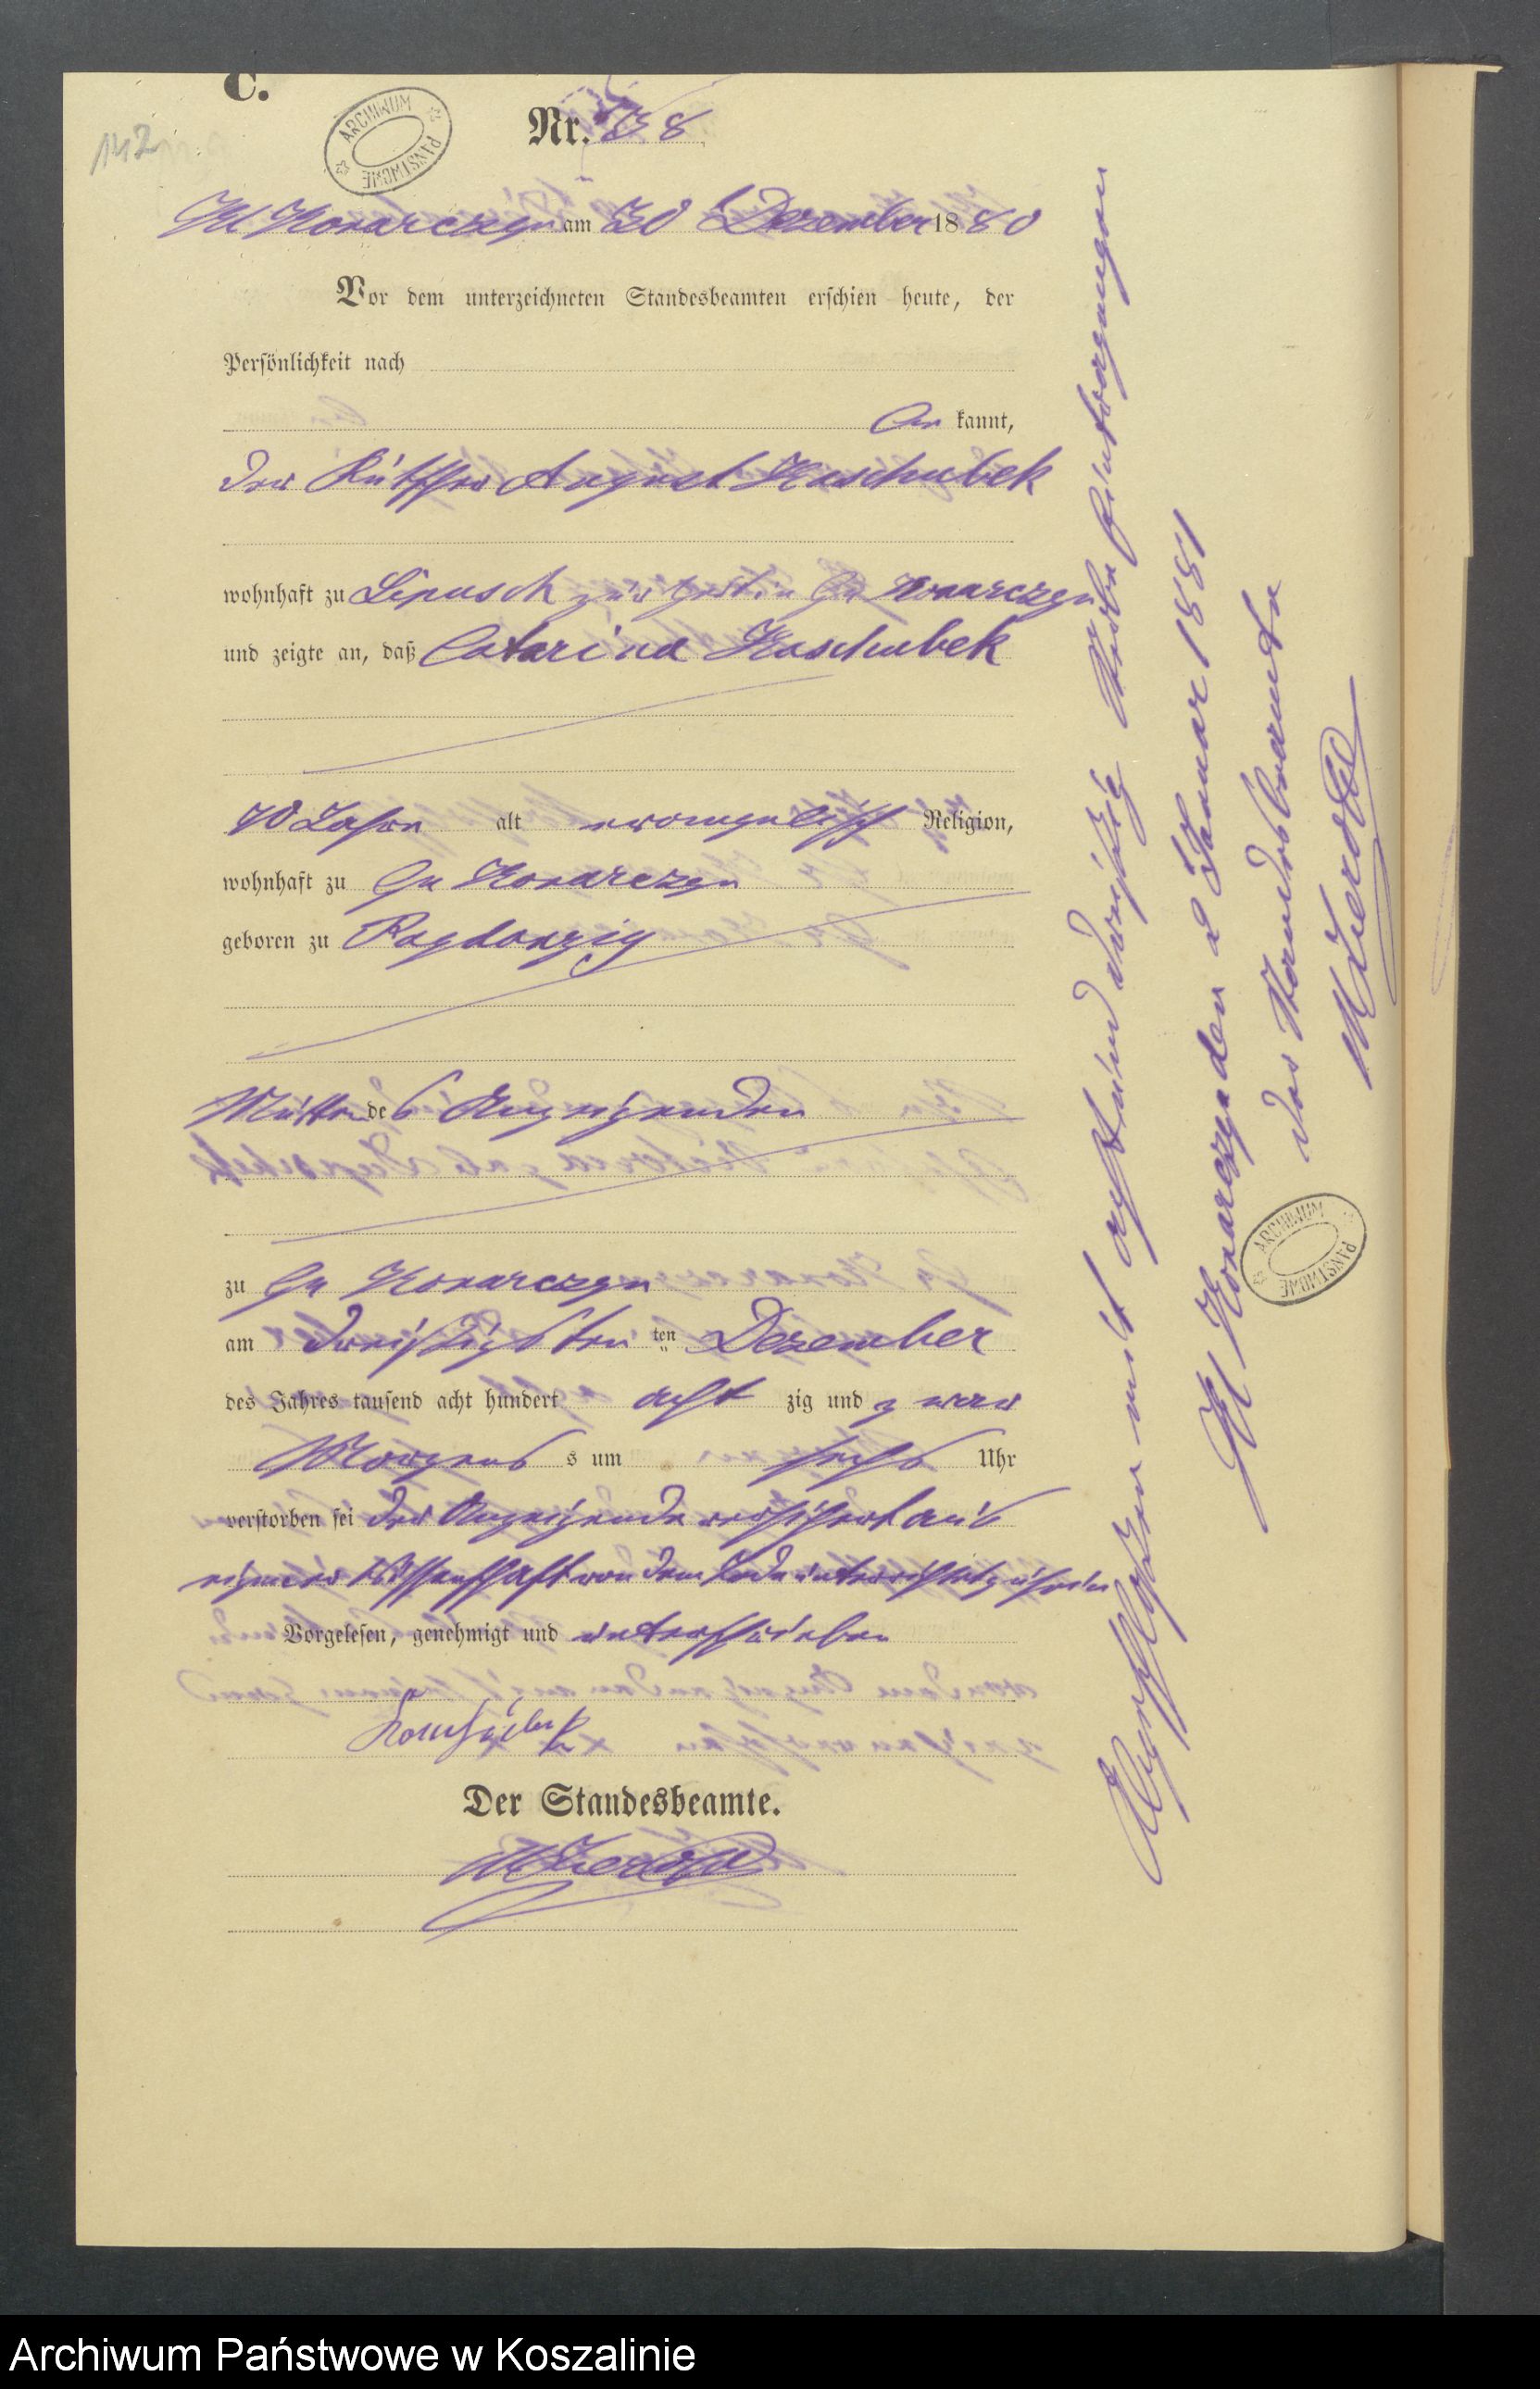 C.
142
ARCHIWUM PAŃSTWOWE
Nr. 38
Kl Konarczyn am 30 Dezember 1880
Vor dem unterzeichneten Standesbeamten erschien heute, der
Persönlichkeit nach
be kannt,
der Kutscher August Kaschubek
wohnhaft zu Lipusch zur Zeit in Gr Konarczyn
und zeigte an, daß Catarina Kaschubek
70 Jahre alt evangelisch Religion,
wohnhaft zu Gr Konarczyn
geboren zu
Mutter des Anzeigenden
zu Gr Konarczyn
am dreißigsten ten Dezember
des Jahres tausend acht hundert acht zig und zwar
Morgens s um sechs Uhr
verstorben sei der Anzeigende versichert aus
eigener Wissenschaft von dem Tode unterrichtet zu sein
Vorgelesen, genehmigt und unterschrieben
Der Standesbeamte.
Abgeschlossen mit acht und dreißig Sterbe Eintragungen
Kl Konarczyn den 2 Januar 1881
Der Standesbeamte
ARCHIWUM PAŃSTWOWE
Archiwum Państwowe w Koszalinie